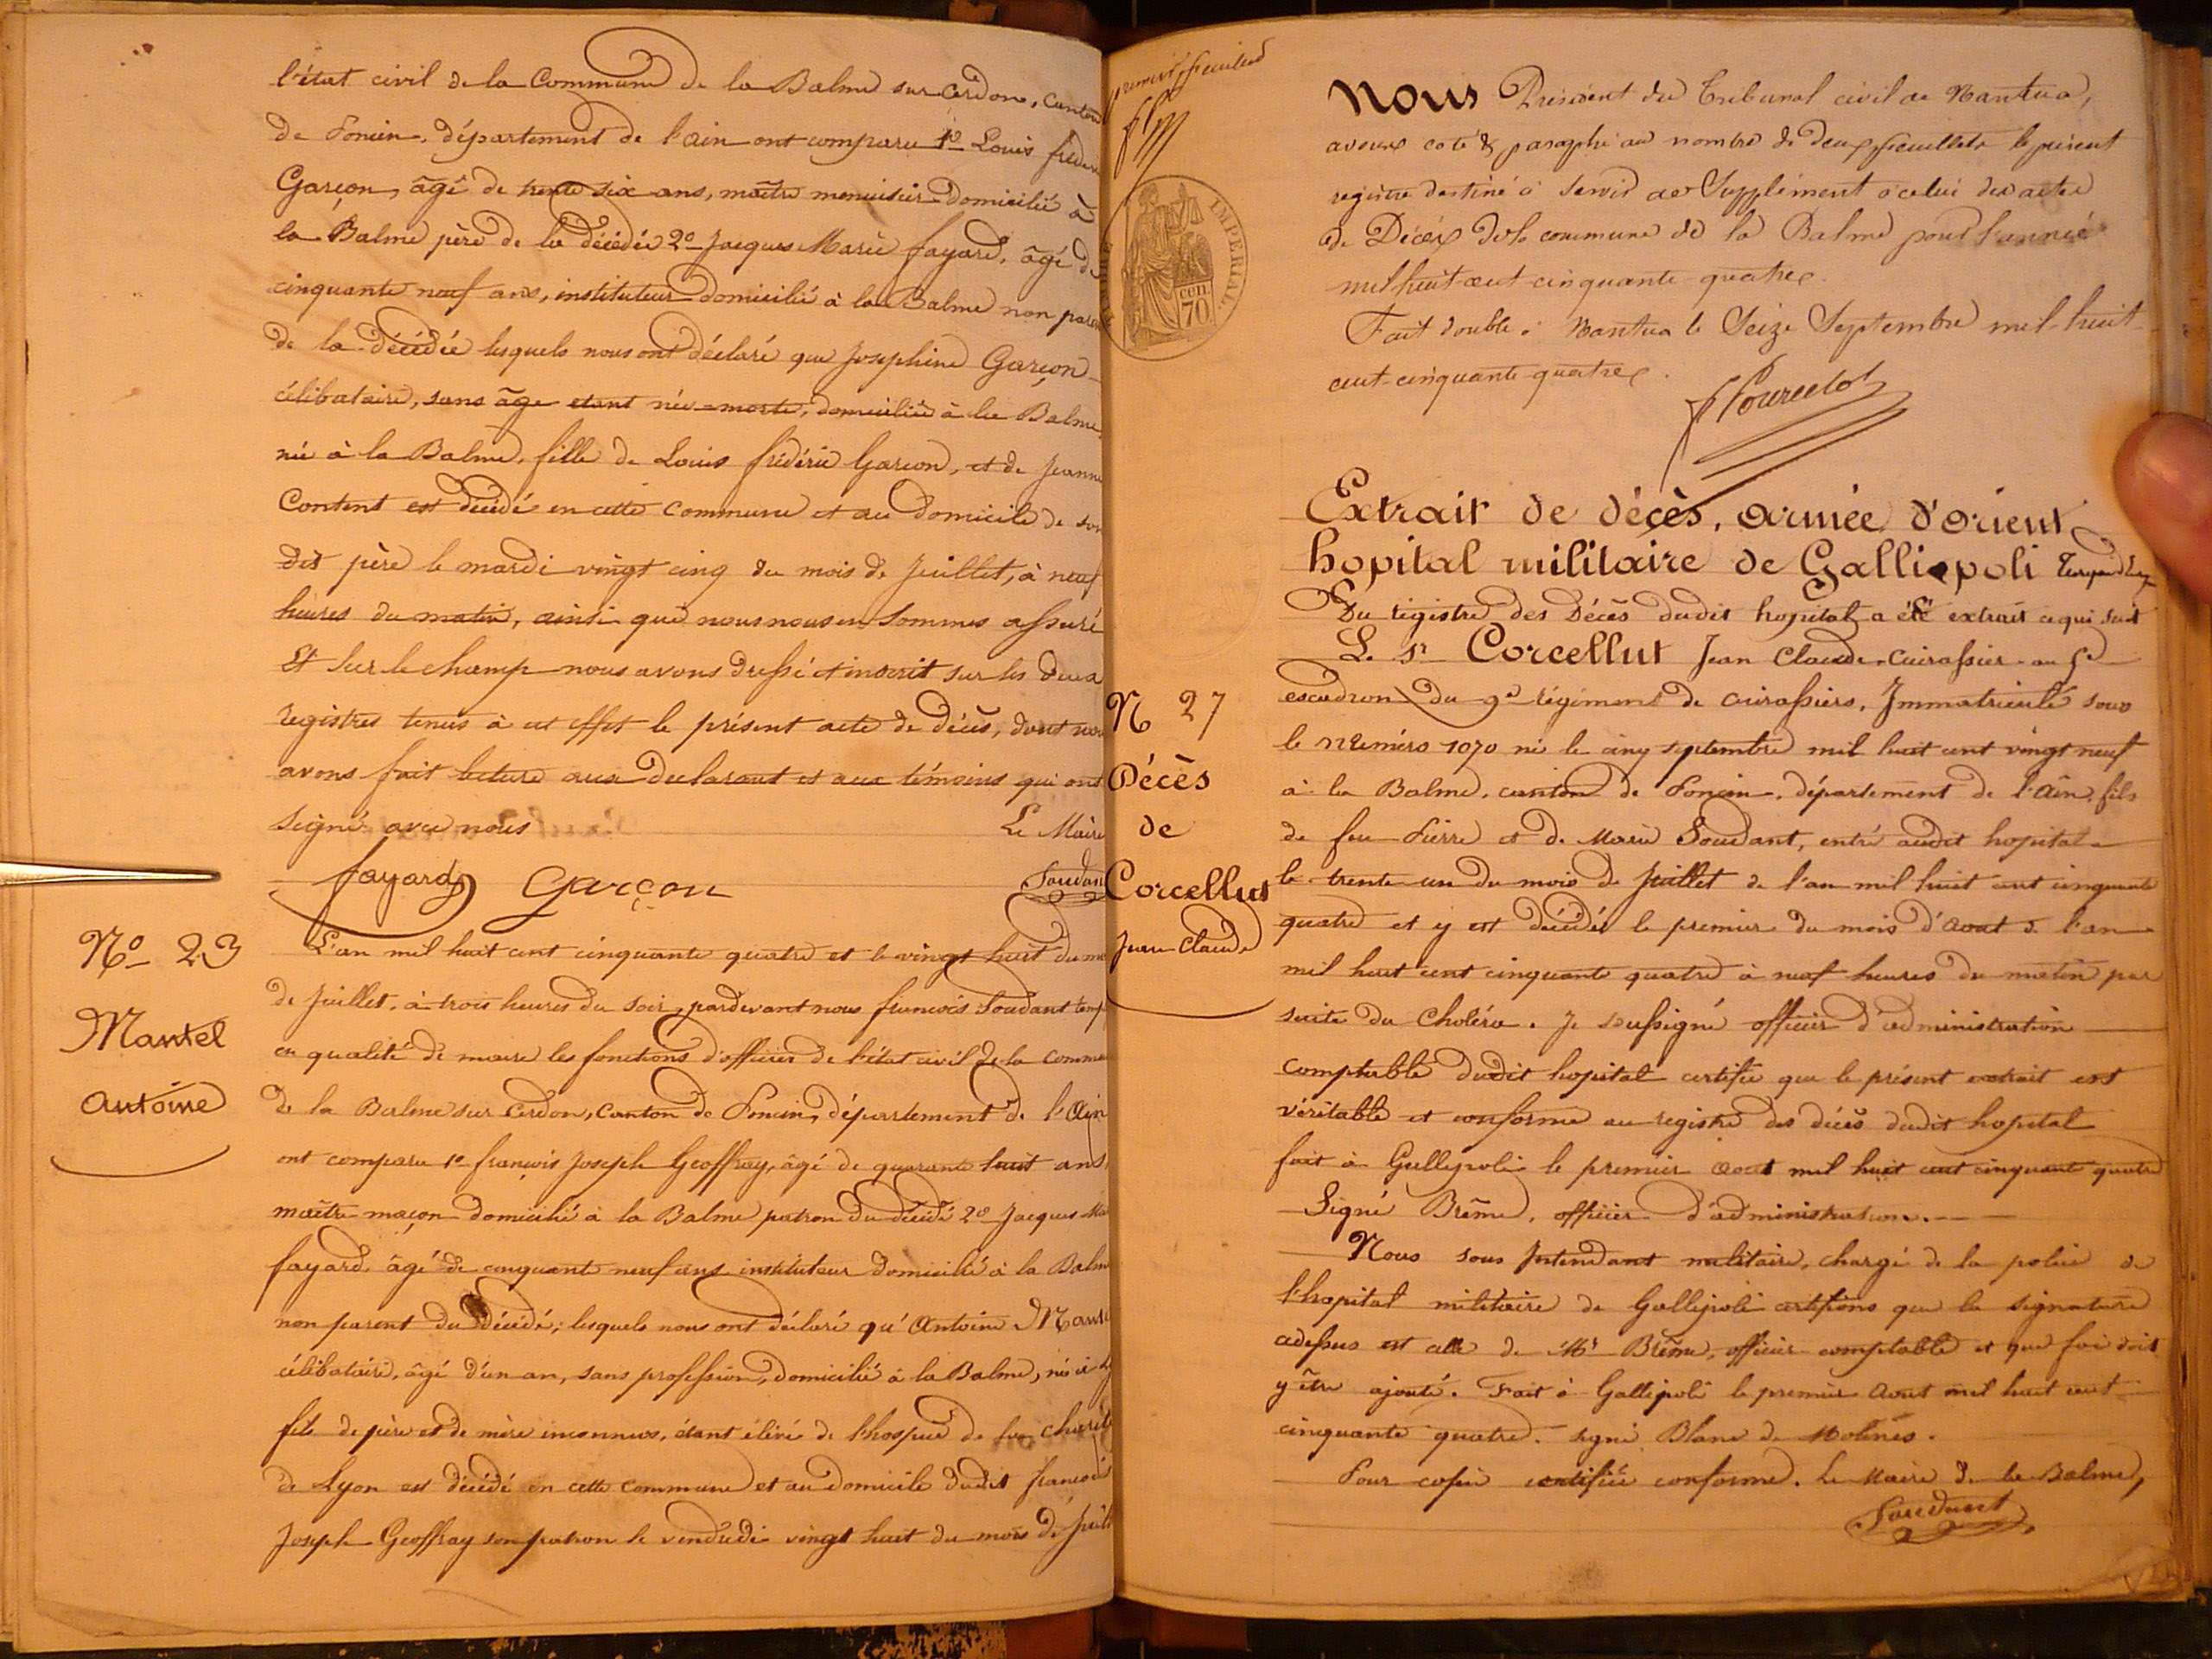 l'état civil de la Commune de la Balme sur Cerdon, Canton
de Poncin, département de l'ain ont comparu 1º Louis fréderic
Garçon, âgé de trente six ans, maître menuisier domicilié à
la Balme père de la décédée 2º Jacques Marie fayard, âgé de
cinquante neuf ans, instituteur domicilié à la Balme non parent
de la décédée lesquels nous ont déclaré que Josephine Garçon
célibataire, sans âge étant née morte, domiciliée à la Balme,
née à la Balme, fille de Louis frédéric Garçon, et de Jeanne
Content est décédé en cette commune et au domicile de son
dit père le mardi vingt cinq du mois de Juillet, à neuf
heures du matin, ainsi que nous nous en sommes assuré
Et sur le champ nous avons dressé et inscrit sur les deux
registres tenus à cet effet le présent acte de décès, dont nous
avons fait lecture aux declarant et aux témoins qui ont
signé avec nous
Le Maire
fayard Garçon Soudan
Nº 23
Mantel
Antoine
L'an mil huit cent cinquante quatre et le vingt huit du mois
de Juillet, à trois heures du soir, pardevant nous francois Soudant
en qualité de maire les fonctions d'officier de l'état civil de la commune
de la Balme sur Cerdon, canton de Poncin, département de l'Ain
ont comparu 1º françois Joseph Geoffray, âgé de quarante huit ans,
maître maçon domicilié à la Balme patron du décédé 2º Jacques Ma
fayard, âgé de cinquante neuf ans instituteur domicilié à la Balme
non parent du décédé; lesquels nous ont déclaré qu'Antoine Mantel
célibataire, âgé d'un an, sans profession, domicilié à la Balme, né à
fils de père et de mère inconnus, étant élévé de l'hospice de la charité
de Lyon est décédé en cette commune et au domicile dudit françois
Joseph Geoffray son patron le vendredi vingt huit du mois de Juillet
premier feuillet
IMPERIAL
CEN.
70
Nous Président du Tribunal civil de Nantua,
avons coté & paraphé au nombre de deux feuillets le présent
registre destiné à servir de Supplément à celui des actes
de Décès de la commune de la Balme pour l'année
mil huit cent cinquante quatre.
Fait double à Nantua le Seize Septembre mil huit
cent cinquante quatre.
Extrait de décès, armée d'orient
hopital militaire de Gallipoli
Du registre des Décès dudit hopital a été extrait ce qui suit
N 27
Décès
de
Corcellut
Jean Claude
Le Sr Corcellut Jean Claude, Cuirassier au 5e
escadron du 9e régiment de cuirassiers, Immatriculé sous
le numéro 1070 né le cinq septembre mil huit cent vingt neuf
à la Balme, canton de Poncin, département de l'Ain, fils
de feu Pierre et de Marie Soudant, entré audit hopital
le trente un du mois de Juillet de l'an mil huit cent cinquante
quatre et y est décédé le premier du mois d'aout de l'an
mil huit cent cinquante quatre à neuf heures du matin par
suite du Choléra. Je soussigné officier d'administration
comptable dudit hopital certifie que le présent extrait est
véritable et conforme au registre des décès dudit hopital
fait à Gallipoli le premier aout mil huit cent cinquante quatre
Signé Brême, officier d'administration.
Nous sous Intendant militaire, chargé de la police de
l'hopital militaire de Gallipoli certifions que la signature
cidessus est celle de Mr Brême, officier comptable et que foi doit
y être ajouté. Fait à Gallipoli le premier Aout mil huit cent
cinquante quatre. signé Blanc de Molines.
Pour copie certifiée conforme. Le Maire de la Balme,
Soudant